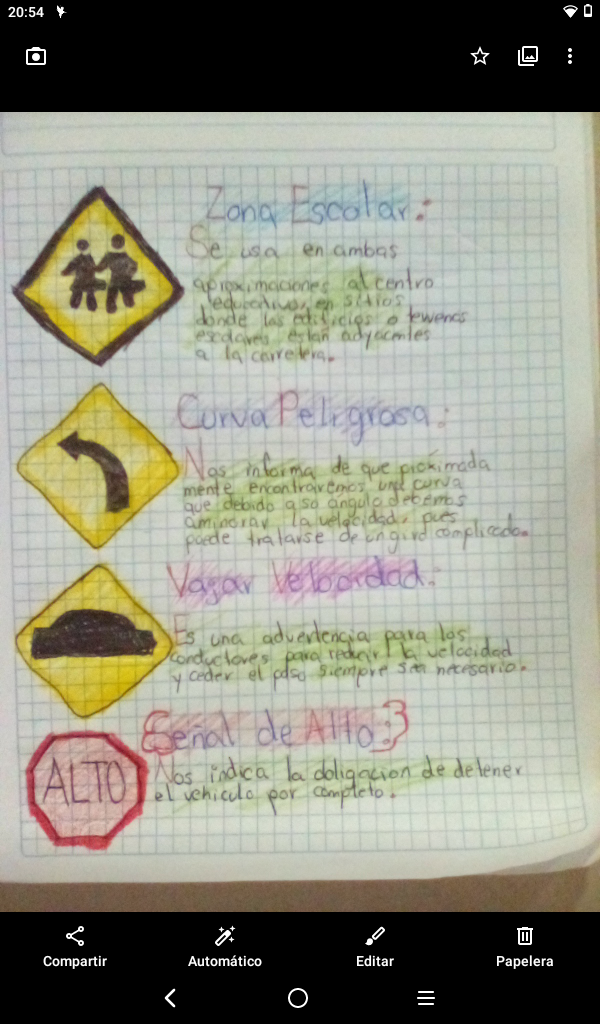 20:54
Zona Escolar:
Se usa en ambas
aproximaciones al centro
educativo, en sitios
donde las edificios o terrenos
escolares están adyacentes
a la carretera.
Curva Peligrosa:
Nos informa de que proximada
mente encontraremos una curva
que debido a so ángulo debemos
aminorar la velocidad, pues
puede tratarse de un giro complicado.
Vajar Velocidad:
Es una advertencia para los
conductores para reducir la velocidad
y ceder el paso siempre sea necesario.
Señal de Alto:
ALTO
Nos indica la obligacion de detener
el vehiculo por completo.
Compartir
Automático
Editar
Papelera